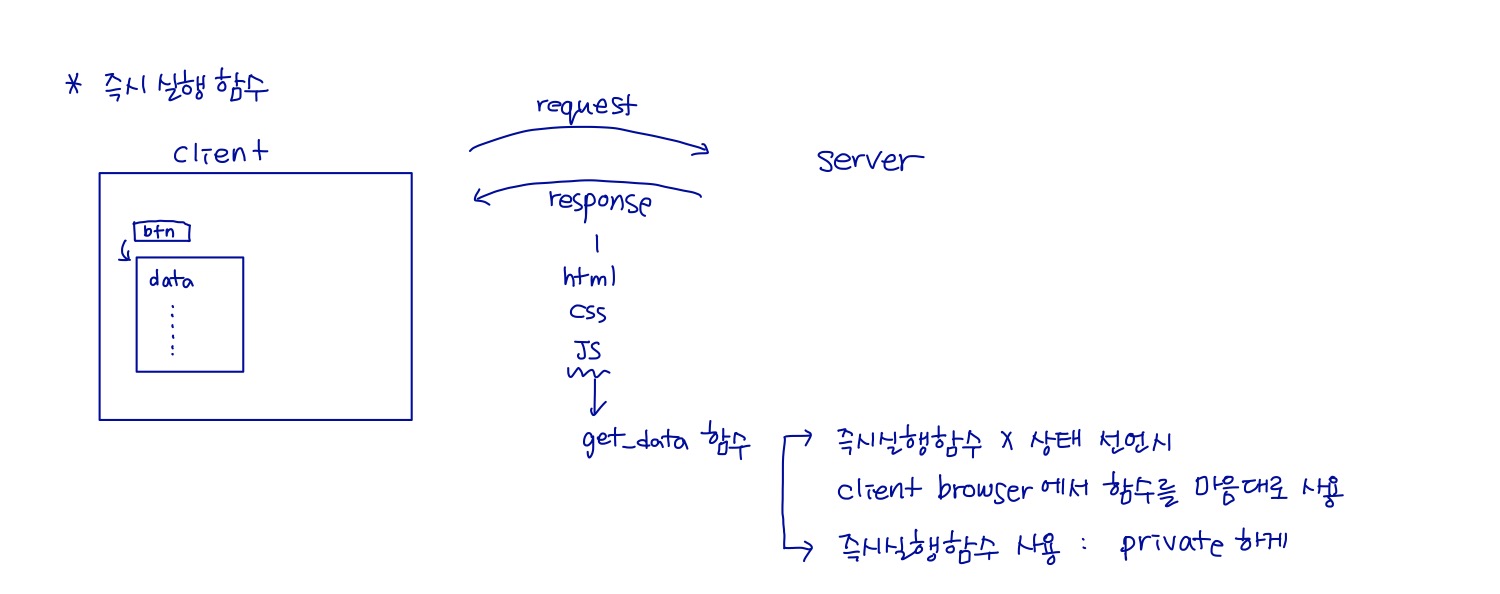 * 즉시 실행 함수
client
request
server
response
btn
data
html
css
JS
get_data 함수
즉시실행함수 X 상태 선언시
client browser에서 함수를 마음대로 사용
즉시실행함수 사용 : private 하게